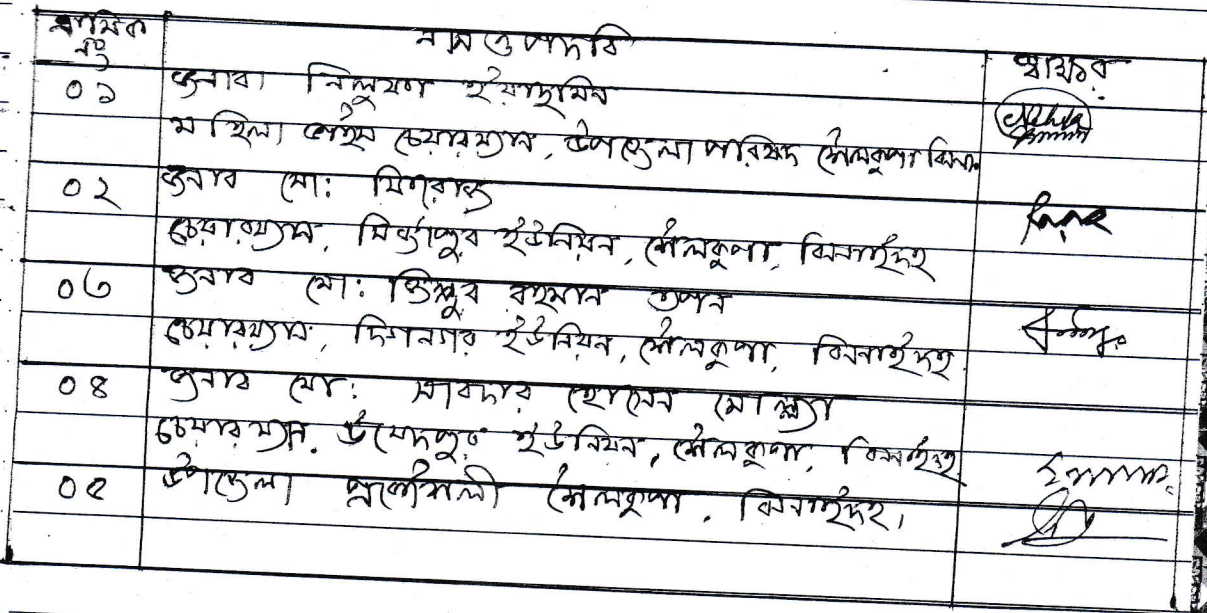 ক্রমিক নং নাম ও পদবি স্বাক্ষর
০১ জনাবা নিলুফা ইয়াছমিন
মহিলা ভাইস চেয়ারম্যান, উপজেলা পরিষদ শৈলকুপা ঝিনা
০২ জনাব মো: ফিরোজ
চেয়ারম্যান, মির্জাপুর ইউনিয়ন, শৈলকুপা, ঝিনাইদহ
০৩ জনাব মো: জিল্লুর রহমান তপন
চেয়ারম্যান, দিগনগর ইউনিয়ন, শৈলকুপা, ঝিনাইদহ
০৪ জনাব মো: সাবদার হোসেন মোল্ল্যা
চেয়ারম্যান, উমেদপুর ইউনিয়ন, শৈলকুপা, ঝিনাইদহ
০৫ উপজেলা প্রকৌশলী শৈলকুপা, ঝিনাইদহ।